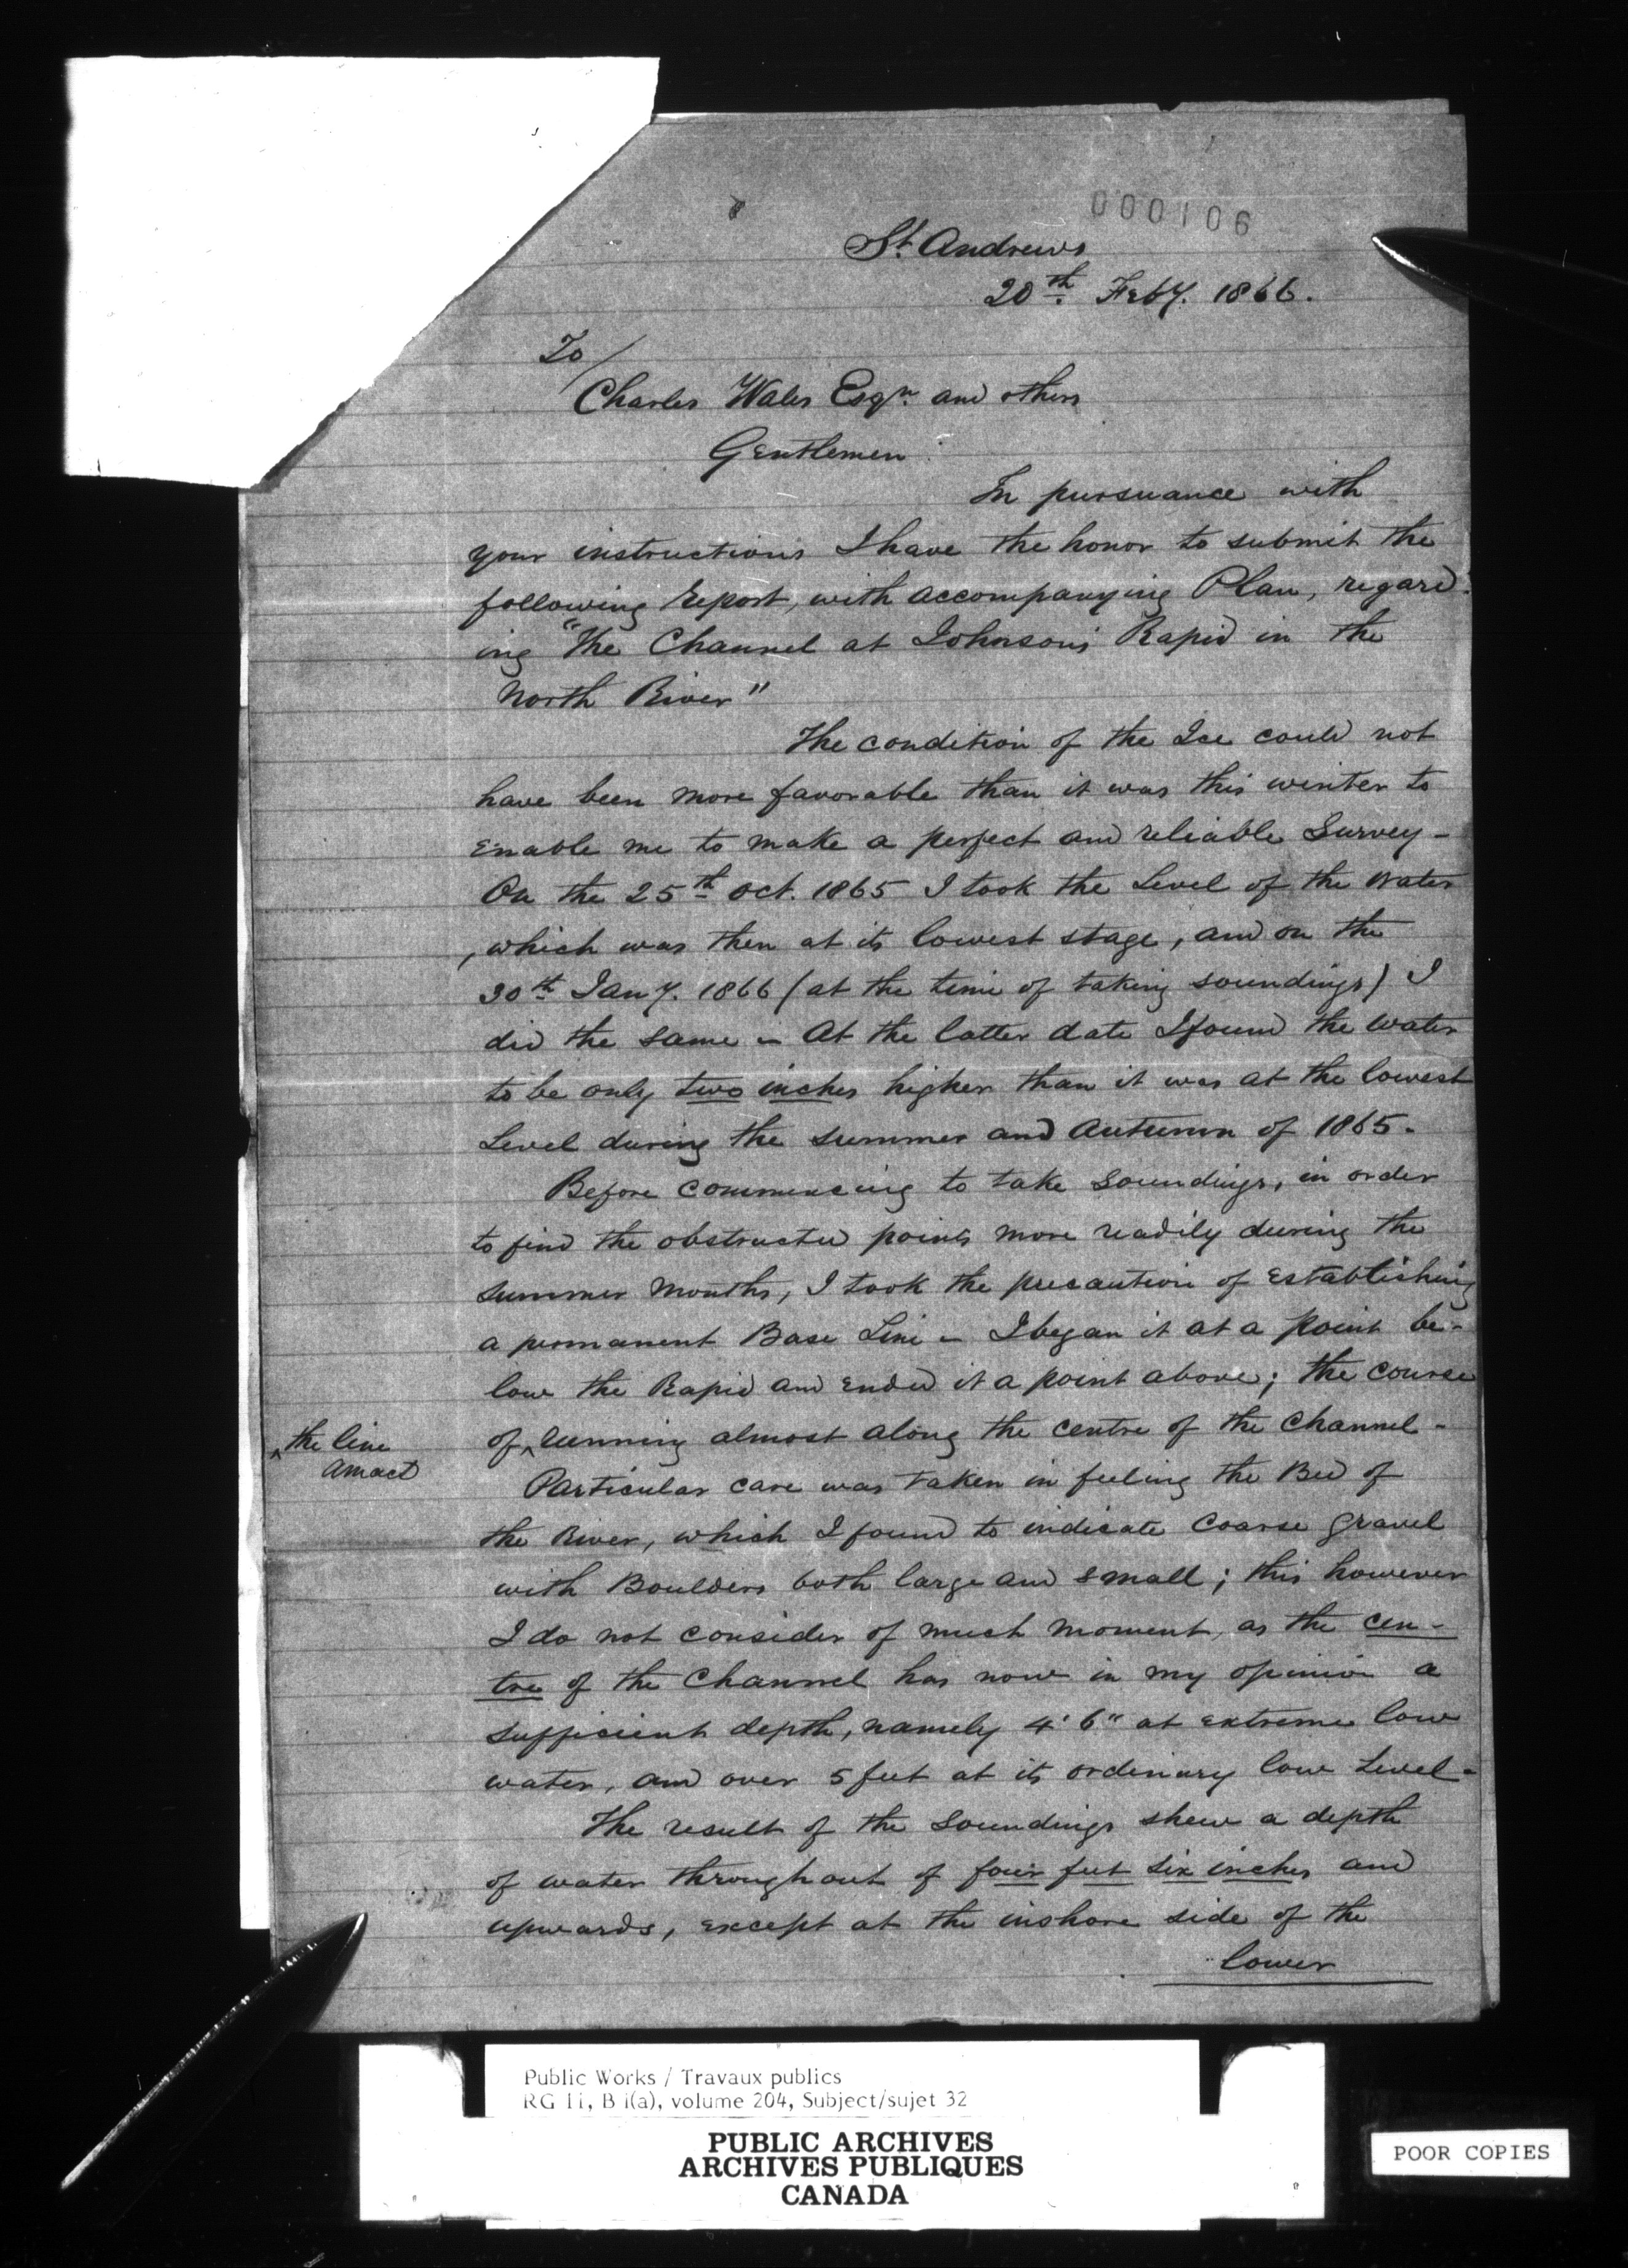 000106
St. Andrews
20th. Feby. 1866.
To/
Charles Wales Esqr. and others
Gentlemen
In pursuance with
your instructions I have the honor to submit the
following Report, with accompanying Plan, regard-
ing "The Channel at Johnson's Rapid in the
North River"
The condition of the Ice could not
have been more favorable than it was this winter to
enable me to make a perfect and reliable Survey -
On the 25th Oct. 1865 I took the Level of the Water
, which was then at its lowest stage, and on the
30th Jany. 1866 (at the time of taking soundings) I
did the same - At the latter date I found the water
to be only two inches higher than it was at the lowest
Level during the summer and Autumn of 1865 -
Before commencing to take Soundings, in order
to find the obstructed points more readily during the
summer months, I took the precaution of establishing
a permanent Base Line - I began it at a point be-
low the Rapid and ended it a point above; the course
^ the line
of ^ running almost along the centre of the Channel -
Particular care was taken in feeling the Bed of
the River, which I found to indicate Coarse gravel
with Boulders both large and small; this however
I do not consider of much moment, as the cen-
tre of the Channel has now in my opinion a
sufficient depth, namely 4' 6" at extreme low
water, and over 5 feet at its ordinary low Level -
The result of the Soundings shew a depth
of water throughout of four feet six inches and
upwards, except at the inshore side of the
lower
Public Works / Travaux publics
RG 11, B 1(a), volume 204, Subject/sujet 32
PUBLIC ARCHIVES
ARCHIVES PUBLIQUES
CANADA
POOR COPIES